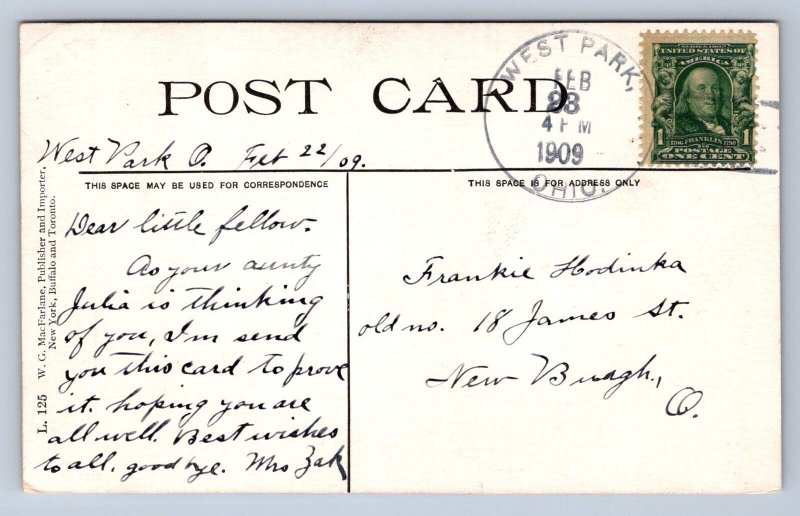 POST CARD
WEST PARK,
FEB
23
4 PM
1909
OHIO.
SERIES 1902
UNITED STATES OF
AMERICA
1 1
1706 FRANKLIN 1790
POSTAGE
ONE CENT
West Park O. Feb 22/09.
THIS SPACE MAY BE USED FOR CORRESPONDENCE
THIS SPACE IS FOR ADDRESS ONLY
L. 125 W. G. MacFarlane, Publisher and Importer,
New York, Buffalo and Toronto.
Dear little fellow.
As your aunty
Julia is thinking
of you, I,m send
you this card to prove
it. hoping you are
all well. Best wishes
to all. good bye. Mrs Zak
Frankie Hodinka
old no. 18 James St.
New Burgh.,
O.